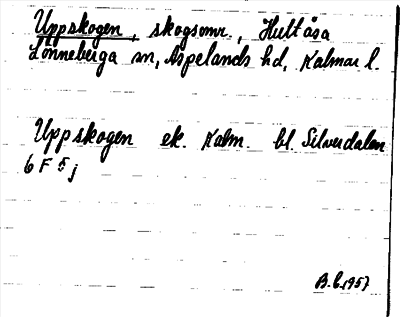 Uppskogen, skogsomr., Hultåsa
Lönneberga sn, Aspelands hd, Kalmar l.
Uppskogen ek. Kalm. bl. Silverdalen
6 F 5 j
B.L. 1957